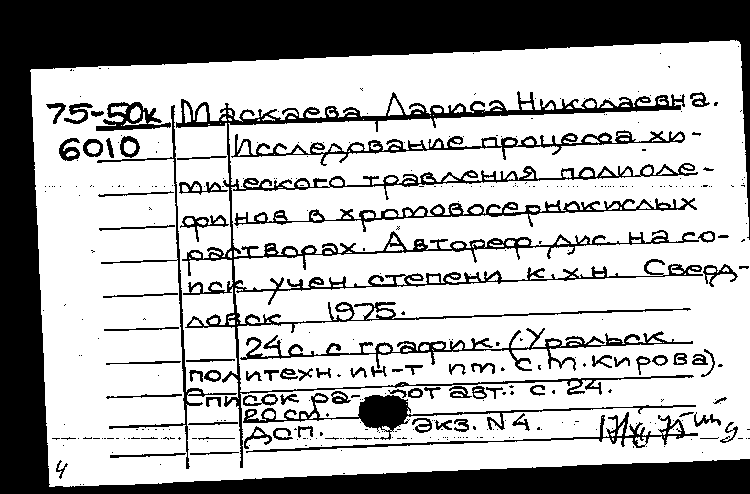 75-50к Маскаева, Лариса Николаевна.
6010 Исследование процесса хи-
мического травления полиоле-
финов в хромовосернокислых
растворах. Автореф. дис. на со-
иск. учен. степени к.х.н. Сверд-
ловск, 1975.
24 с. с график. (Уральск.
политехн. ин-т им. С.М.Кирова).
Список ра- бот авт.: с. 24.
20 см.
Доп. экз. N 4.
4